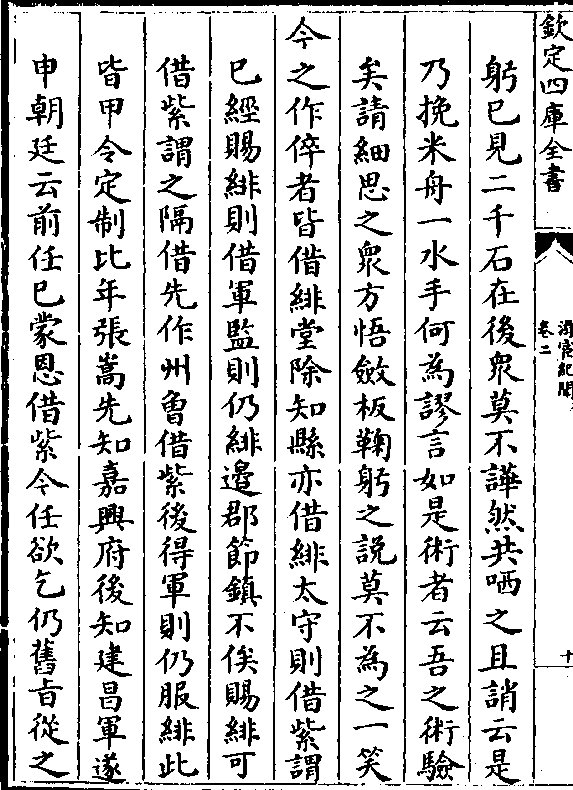 欽定四庫全書
游宦紀聞
卷二
十
躬已見二千石在後衆莫不譁然共哂之且誚云是
乃挽米舟一水手何為謬言如是術者云吾之術驗
矣請細思之衆方悟斂板鞠躬之說莫不為之一笑
今之作倅者皆借緋堂除知縣亦借緋太守則借紫謂
已經賜緋則借軍監則仍緋邊郡節鎮不俟賜緋可
借紫謂之隔借先作州曾借紫後得軍則仍服緋此
皆甲令定制比年張嵩先知嘉興府後知建昌軍遂
申朝廷云前任已蒙恩借紫今任欲乞仍舊㫖從之